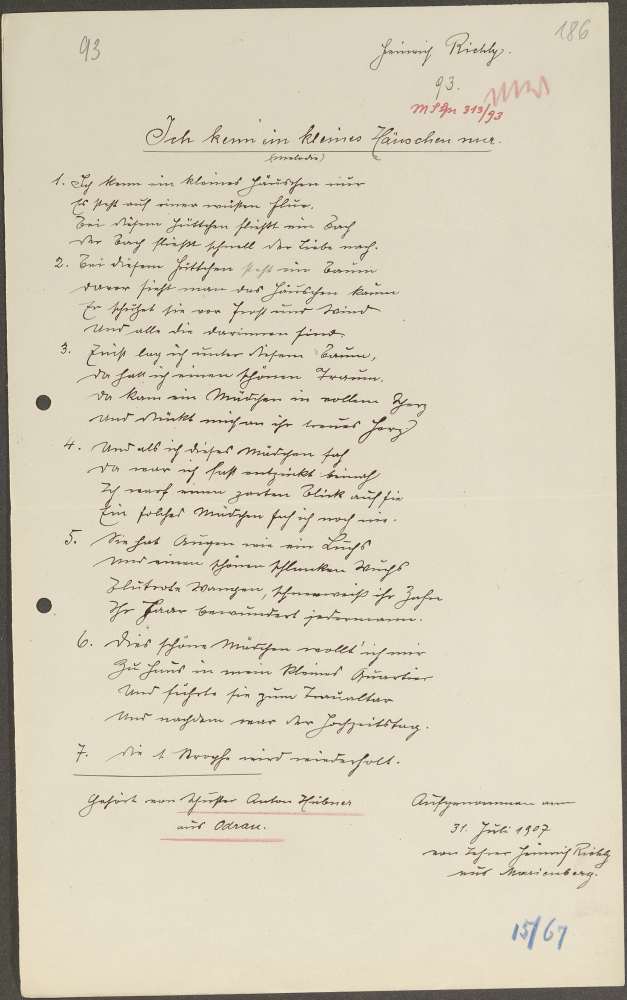 93
186
Heinrich Richly.
93.
MSGr 313/93
Ich kenn ein kleines Häuschen nur.
(Melodie)
1. Ich kenn ein kleines Häuschen nur
Es steht auf einer wüsten Flur.
Bei diesem Hüttchen fließt ein Bach
Der Bach fließt schnell der Liebe nach.
2. Bei diesem Hüttchen steht ein Baum
davor sieht man das Häuschen kaum
Er schützet sie vor Frost und Wind
Und alle die darinnen sind.
3. Einst lag ich unter diesem Baum,
Da hatt ich einen schönen Traum.
Da kam ein Mädchen in vollem Scherz
Und drückt mich an ihr treues Herz
4. Und als ich dieses Mädchen sah
Da war ich fast entzückt beinah
Ich warf einen zarten Blick auf sie
Ein solches Mädchen sah ich noch nie.
5. Sie hat Augen wie ein Luchs
Und einen schönen schlanken Wuchs
Blutrote Wangen, schneeweiß ihr Zahn
Ihr Haar bewundert jedermann.
6. Dies schöne Mädchen wollt' ich mir
Zu Haus in mein kleines Quartier
Und führte sie zum Traualtar
Und nachdem war der Hochzeitstag.
7. Die 1 Strophe wird wiederholt.
Gehört von Schuster Anton Hübner
aus Odrau.
Aufgenommen am
31. Juli 1907
von Lehrer Heinrich Richly
aus Marienberg.
15/67